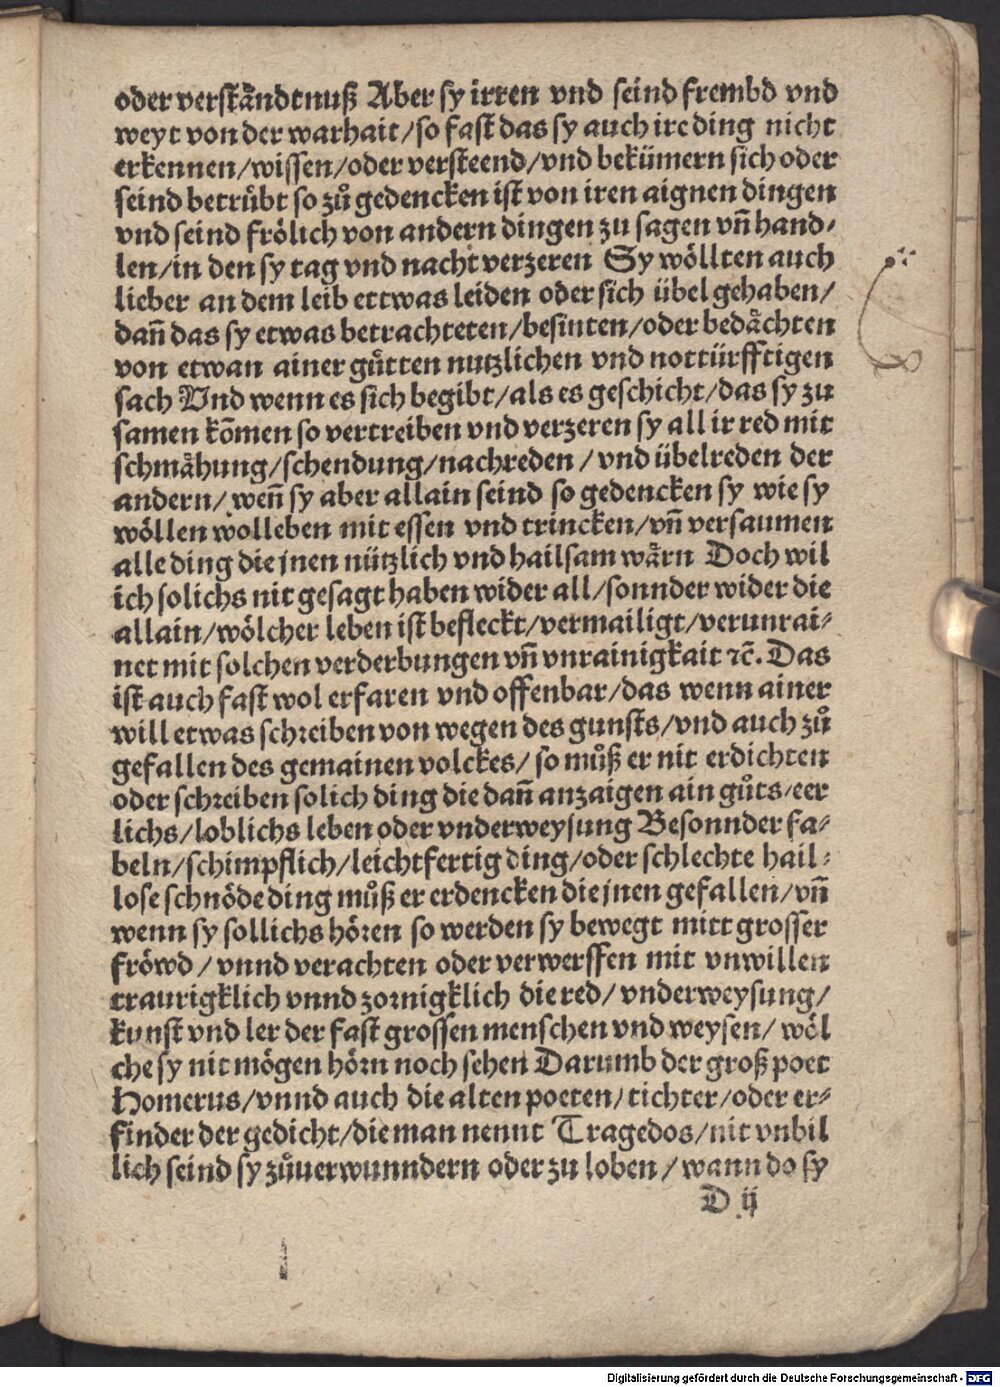 oder verständtnuß Aber sy irren vnd seind frembd vnd
weyt von der warhait/so fast das sy auch ire ding nicht
erkennen/wissen/oder versteend/vnd bekümern sich oder
seind betrübt so zů gedencken ist von iren aignen dingen
vnd seind frölich von andern dingen zu sagen vñ hand⸗
len/in den sy tag vnd nacht verzeren Sy wöllten auch
lieber an dem leib ettwas leiden oder sich übel gehaben/
dañ das sy etwas betrachteten/besinten/oder bedächten
von etwan ainer gůtten nutzlichen vnd nottürfftigen
sach Vnd wenn es sich begibt/als es geschicht/das sy zu
samen kõmen so vertreiben vnd verzeren sy all ir red mit
schmähung/schendung/nachreden/vnd übelreden der
andern/weñ sy aber allain seind so gedencken sy wie sy
wöllen wolleben mit essen vnd trincken/vñ versaumen
alle ding die jnen nützlich vnd hailsam wärn Doch wil
ich solichs nit gesagt haben wider all/sonnder wider die
allain/wölcher leben ist befleckt/vermailigt/verunrai⸗
net mit solchen verderbungen vñ vnrainigkait ꝛc̃. Das
ist auch fast wol erfaren vnd offenbar/das wenn ainer
will etwas schꝛeiben von wegen des gunsts/vnd auch zů
gefallen des gemainen volckes/so můß er nit erdichten
oder schꝛeiben solich ding die dañ anzaigen ain gůts/eer
lichs/loblichs leben oder vnderweysung Besonnder fa⸗
beln/schimpflich/leichtfertig ding/oder schlechte hail⸗
lose schnöde ding můß er erdencken die jnen gefallen/vñ
wenn sy sollichs höꝛen so werden sy bewegt mitt grosser
fröwd/vnnd verachten oder verwerffen mit vnwillen
traurigklich vnnd zoꝛnigklich die red/vnderweysung/
kunst vnd ler der fast grossen menschen vnd weysen/wöl
che sy nit mögen höꝛn noch sehen Darumb der groß poet
Homerus/vnnd auch die alten poeten/tichter/oder er⸗
finder der gedicht/die man nennt Tragedos/nit vnbil
lich seind sy zůuerwunndern oder zu loben/wann do sy
D ij
Digitalisierung gefördert durch die Deutsche Forschungsgemeinschaft - DFG